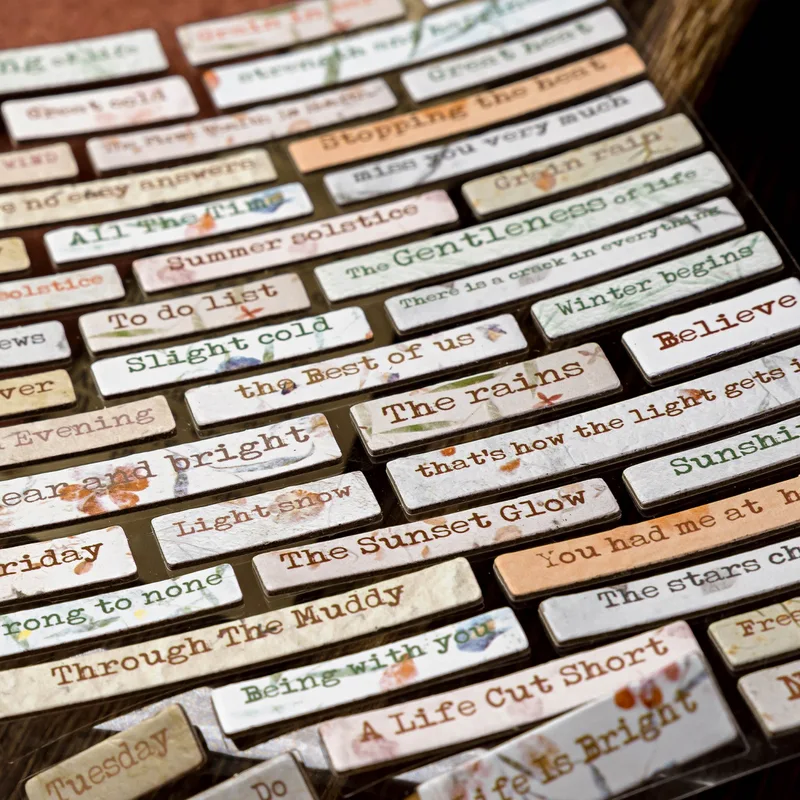 Grain in
ng of life
strength and happiness
Great heat
Great cold
Stopping the heat
WIND
miss you very much
no easy answers
Grain rain
All The Time
Summer solstice
The Gentleness of life
There is a crack in everything
solstice
To do list
Winter begins
ews
Slight cold
Believe
the Best of us
ver
The rains
Evening
that's how the light gets i
ear and bright
Sunshi
Light snow
The Sunset Glow
You had me at h
riday
The stars ch
rong to none
Through The Muddy
Free
Being with you
A Life Cut Short
N
Life Is Bright
Tuesday
Do